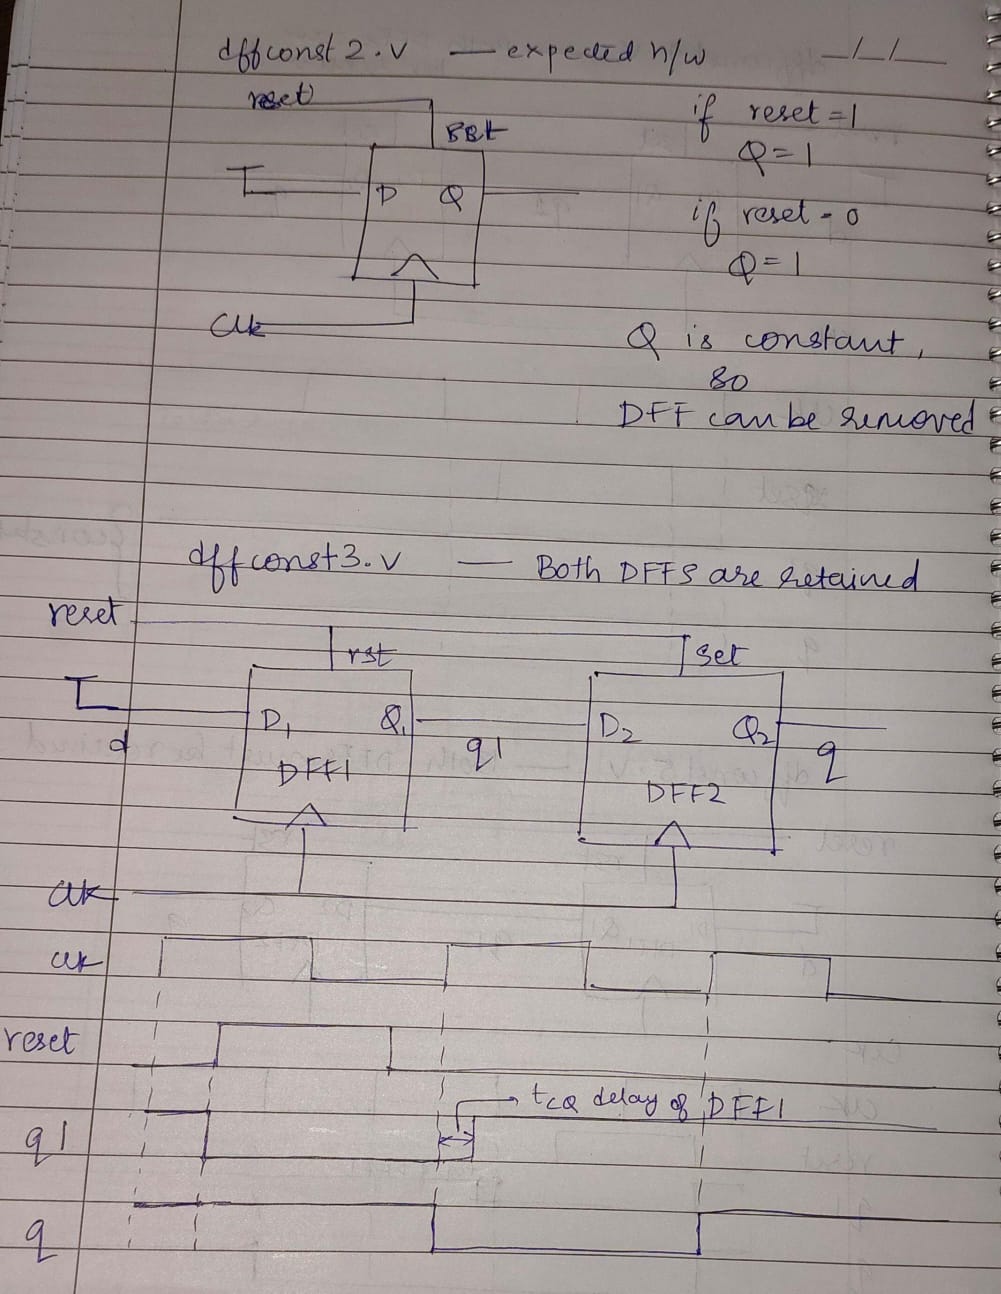 dffconst2.v — expected h/w
_/_/__
reset
set
D Q
clk
if reset=1
Q=1
if reset=0
Q=1
Q is constant,
so
DFF can be removed
dffconst3.v — Both DFFS are retained
reset
rst
set
D1 Q1
D2 Q2
d
q1
q
DFF1
DFF2
clk
clk
reset
→ tCQ delay of DFF1
q1
q